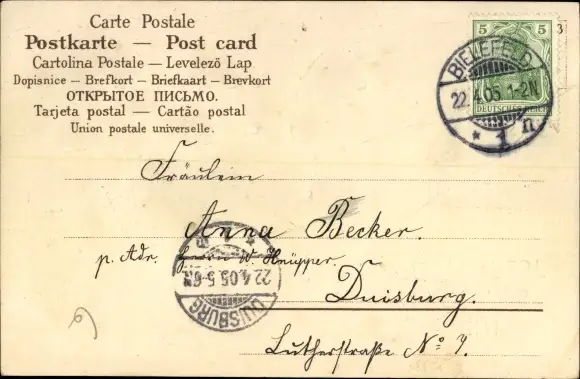 Carte Postale
Postkarte — Post card
Cartolina Postale — Levelező Lap
Dopisnice — Brefkort — Briefkaart — Brevkort
ОТКРЫТОЕ ПИСЬМО.
Tarjeta postal — Cartão postal
Union postale universelle.
5 5
3
DEUTSCHES REICH
BIELEFELD
22.4.05 1-2N
* 1 n
Fräulein
Anna Becker.
p. Adr. Herrn W. Knüpper.
Duisburg.
Lutherstraße No 7.
DUISBURG
22.4.05.5-6N